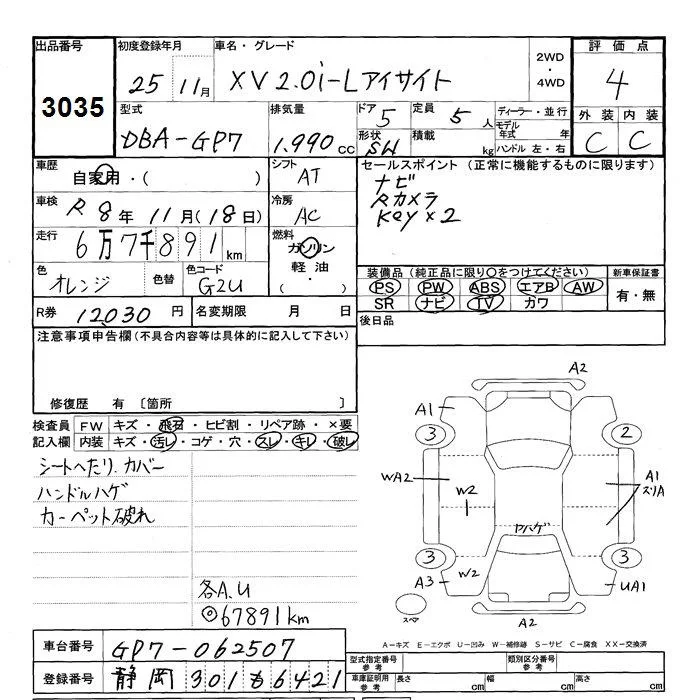 出品番号 初度登録年月 車名・グレード 2WD・4WD 評価点
3035 25 11月 XV 2.0i-Lアイサイト 4
型式 排気量 ドア 5 定員 5人 ディーラー・並行 外装 内装
DBA-GP7 1.990cc 形状 SW 積載 kg モデル年式 年 ハンドル 左・右 C C
車歴 自家用・( ) シフト AT セールスポイント (正常に機能するものに限ります)
車検 R 8年 11月(18日) 冷房 AC ナビ
Rカメラ
Key×2
走行 6万7千891km 燃料 ガソリン
軽油
・( )
色 オレンジ 色替 色コード G2U
装備品 (純正品に限り○をつけてください) 新車保証書
PS PW ABS エアB AW 有・無
SR ナビ TV カワ
R券 12,030円 名変期限 月 日 後日品
注意事項申告欄(不具合内容等は具体的に記入して下さい)
修復歴 有 〔箇所 〕
検査員 FW キズ・飛石・ヒビ割・リペア跡・×要
記入欄 内装 キズ・汚レ・コゲ・穴・スレ・キレ・破レ
シートへたり.カバー
ハンドルハゲ
カーペット破れ
各A.U
◎67891km
A2
A1
3 2
WA2 W2 A1
スリA
ヤハゲ
3 3
A3 W2 UA1
スペア A2
A-キズ E-エクボ U-凹み W-補修跡 S-サビ C-腐食 XX-交換済
車台番号 GP7-062507 型式指定番号 参考 類別区分番号 参考
登録番号 静岡 301 も 6421 車庫証明用 参考 長さ cm 幅 cm 高さ cm